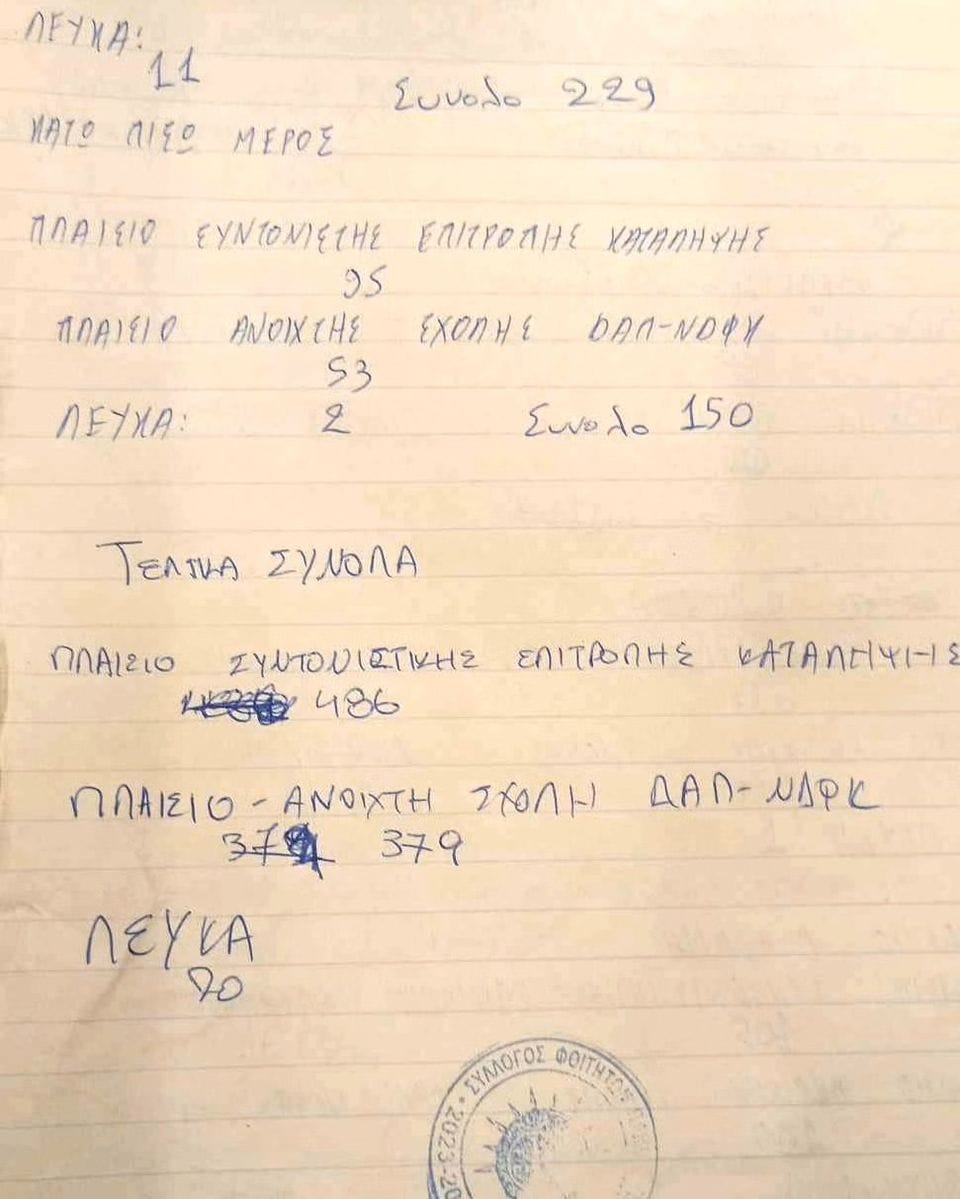 ΛΕΥΚΑ:
11
Συνολο 229
ΚΑΤΩ ΠΙΣΩ ΜΕΡΟΣ
ΠΛΑΙΣΙΟ ΣΥΝΤΟΝΙΣΤΗΣ ΕΠΙΤΡΟΠΗΣ ΚΑΤΑΛΗΨΗΣ
95
ΠΛΑΙΣΙΟ ΑΝΟΙΧΤΗΣ ΣΧΟΛΗΣ ΔΑΠ-ΝΔΦΚ
53
ΛΕΥΚΑ: 2 Συνολο 150
ΤΕΛΙΚΑ ΣΥΝΟΛΑ
ΠΛΑΙΣΙΟ ΣΥΝΤΟΝΙΣΤΙΚΗΣ ΕΠΙΤΡΟΠΗΣ ΚΑΤΑΛΗΨΗΣ
486
ΠΛΑΙΣΙΟ - ΑΝΟΙΧΤΗ ΣΧΟΛΗ ΔΑΠ-ΝΔΦΚ
379
ΛΕΥΚΑ
70
ΣΥΛΛΟΓΟΣ ΦΟΙΤΗΤΩΝ
2023-20